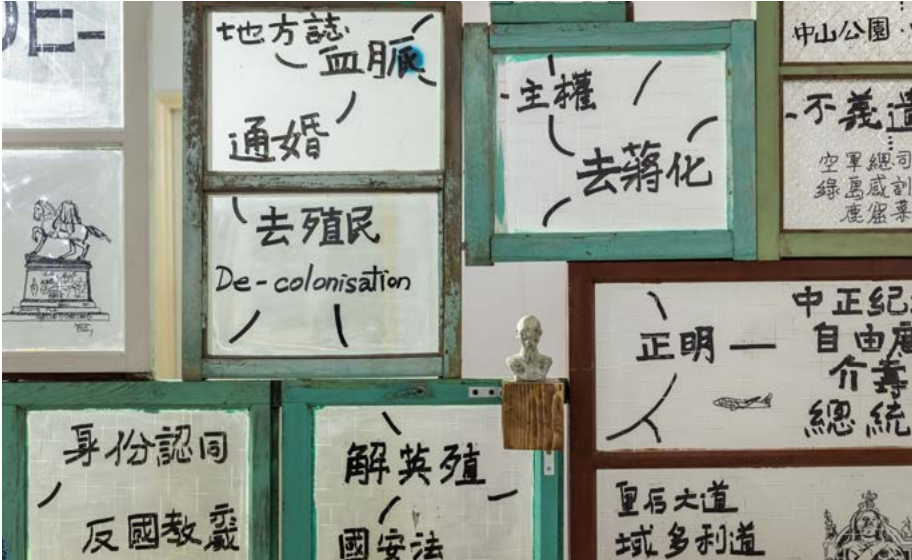 DE-
地方誌
血脈
通婚
去殖民
De-colonisation
主權
去蔣化
中山公園
不義遺
空軍總司
綠島感訓
正明
中正紀
自由廣
介壽
總統
身份認同
反國教
解英殖
國安法
皇后大道
域多利道